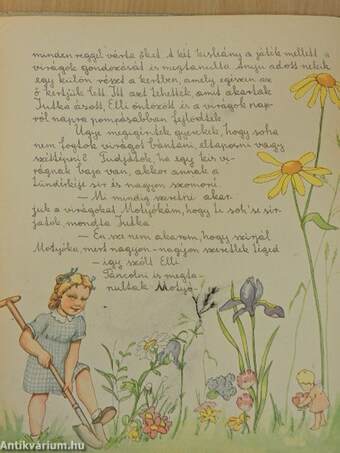 minden reggel várta őket. A két kislány a játék mellett a
virágok gondozását is megtanulta. Anyu adott nekik
egy külön részt a kertben, amely egészen az
ő kertjük lett. Itt azt tehették, amit akartak
Jutka ásott, Elli öntözött és a virágok nap-
ról napra pompásabban fejlődtek.
Úgy megígérték, gyerekek, hogy soha
nem fogtok virágot bántani, eltaporni vagy
széttépni! Tudjátok, ha egy kis vi-
rágnak baja van, akkor annak a
Tündérkéje sír és nagyon szomorú.
— Mi mindig szeretni akar-
juk a virágokat Motyókám, hogy te soh'se sír-
játok, mondta Jutka
— Én sem akarom, hogy sírjál
Motyóka, mert nagyon-nagyon szeretlek téged
— így szólt Elli
Táncolni is megta-
nultak Motyó-
Antikvárium.hu